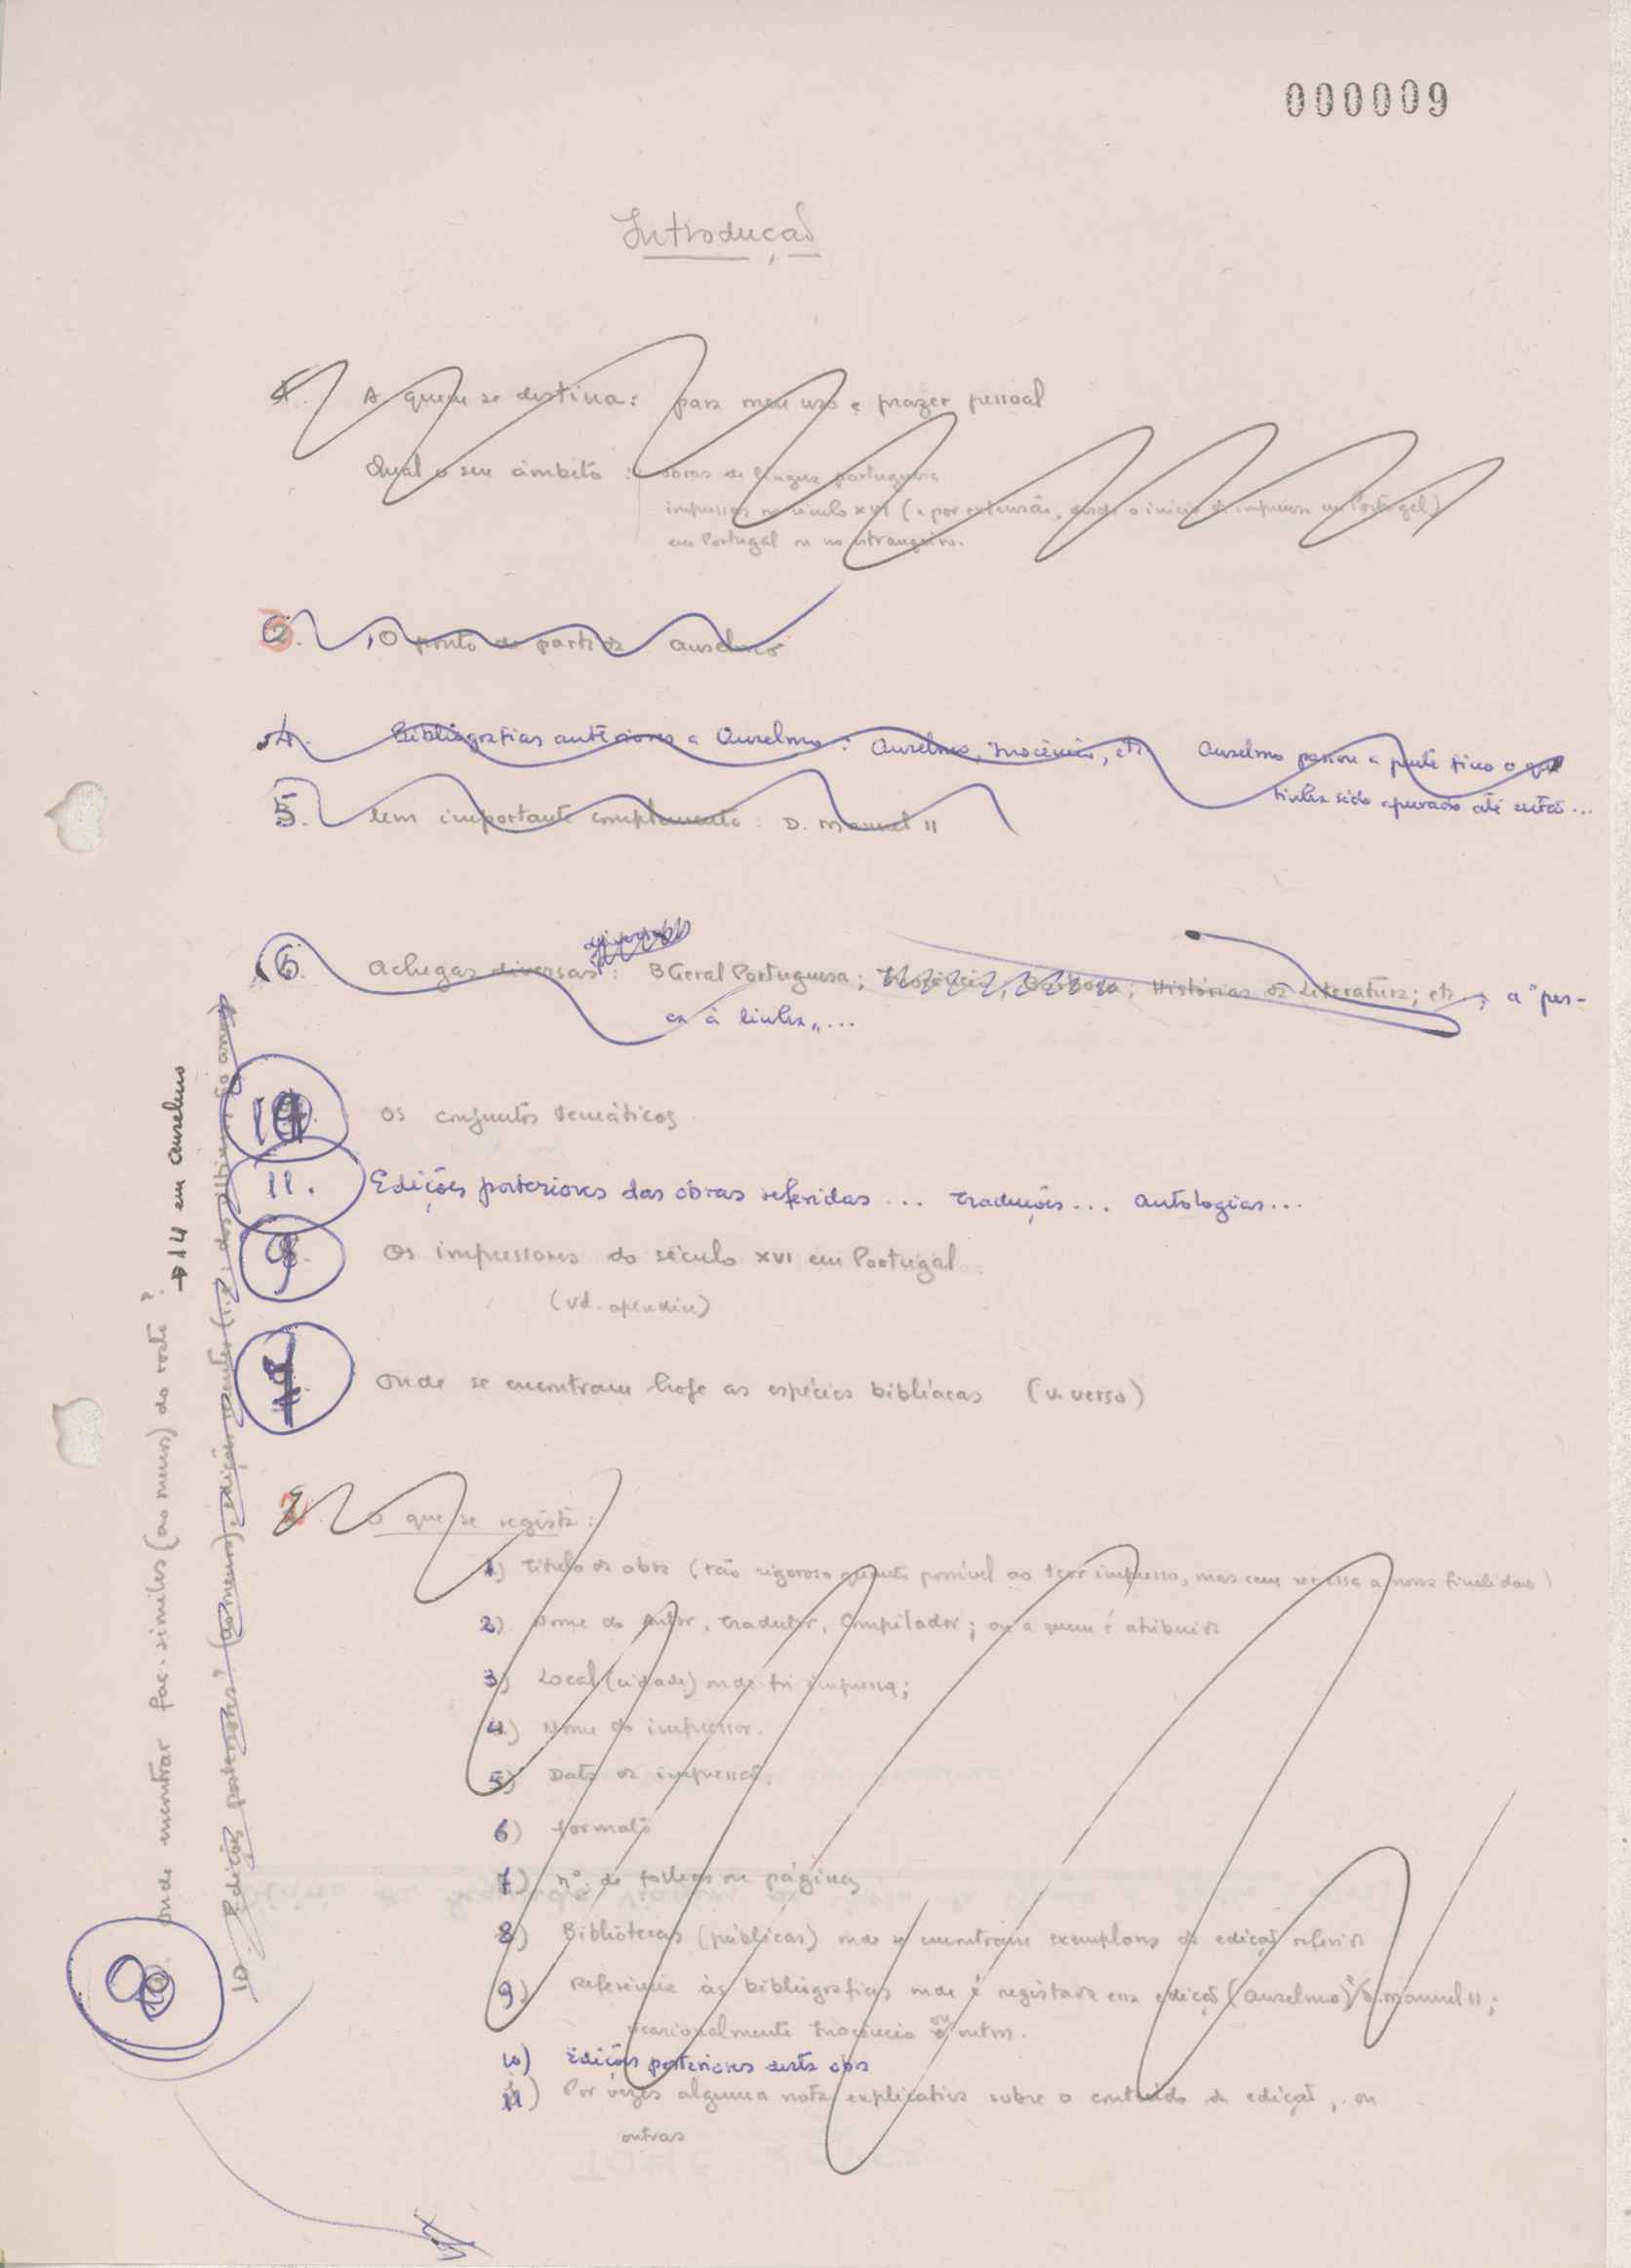 000009
Introdução
1. A quem se destina: para meu uso e prazer pessoal
Qual o seu âmbito : obras de língua portuguesa
impressas no século XVI (e por extensão, desde o início da imprensa em Portugal)
em Portugal ou no estrangeiro.
O ponto de partida Anselmo
4. Bibliografias anteriores a Anselmo: Anselmo, Inocêncio, etc Anselmo passou a pente fino o que
tinha sido apurado até então...
5. Um importante complemento: D. Manuel II
6. Achegas diversas: diversos B Geral Portuguesa; Inocêncio, Barbosa; Histórias da Literatura; etc; a "pes-
ca à linha"...
Os conjuntos temáticos
11. Edições posteriores das obras referidas ... traduções... antologias...
9. Os impressores do século XVI em Portugal
(vd. apêndice)
Onde se encontram hoje as espécies bibliacas (v. verso)
2. O que se regista:
1) Título da obra (tão rigoroso quanto possível ao teor impresso, mas sem ser essa a nossa finalidade)
2) Nome do Autor, tradutor, Compilador; ou a quem é atribuída
3) Local (cidade) onde foi impressa;
4) Nome do impressor.
5) Data da impressão.
6) formato
7) nº de folhas ou páginas
8) Bibliotecas (públicas) onde se encontram exemplares da edição referida
9) Referência às bibliografias onde é registada essa edição (Anselmo) D. Manuel II;
ocasionalmente Inocêncio ou outros.
10) Edições posteriores desta obra
11) Por vezes alguma nota explicativa sobre o conteúdo da edição, ou
outras
8 Onde encontrar fac-similes (ao menos) do rosto? → 14 em Anselmo
10. Edições posteriores? (ao menos), edições recentes (i.e. dos últimos 50 anos)